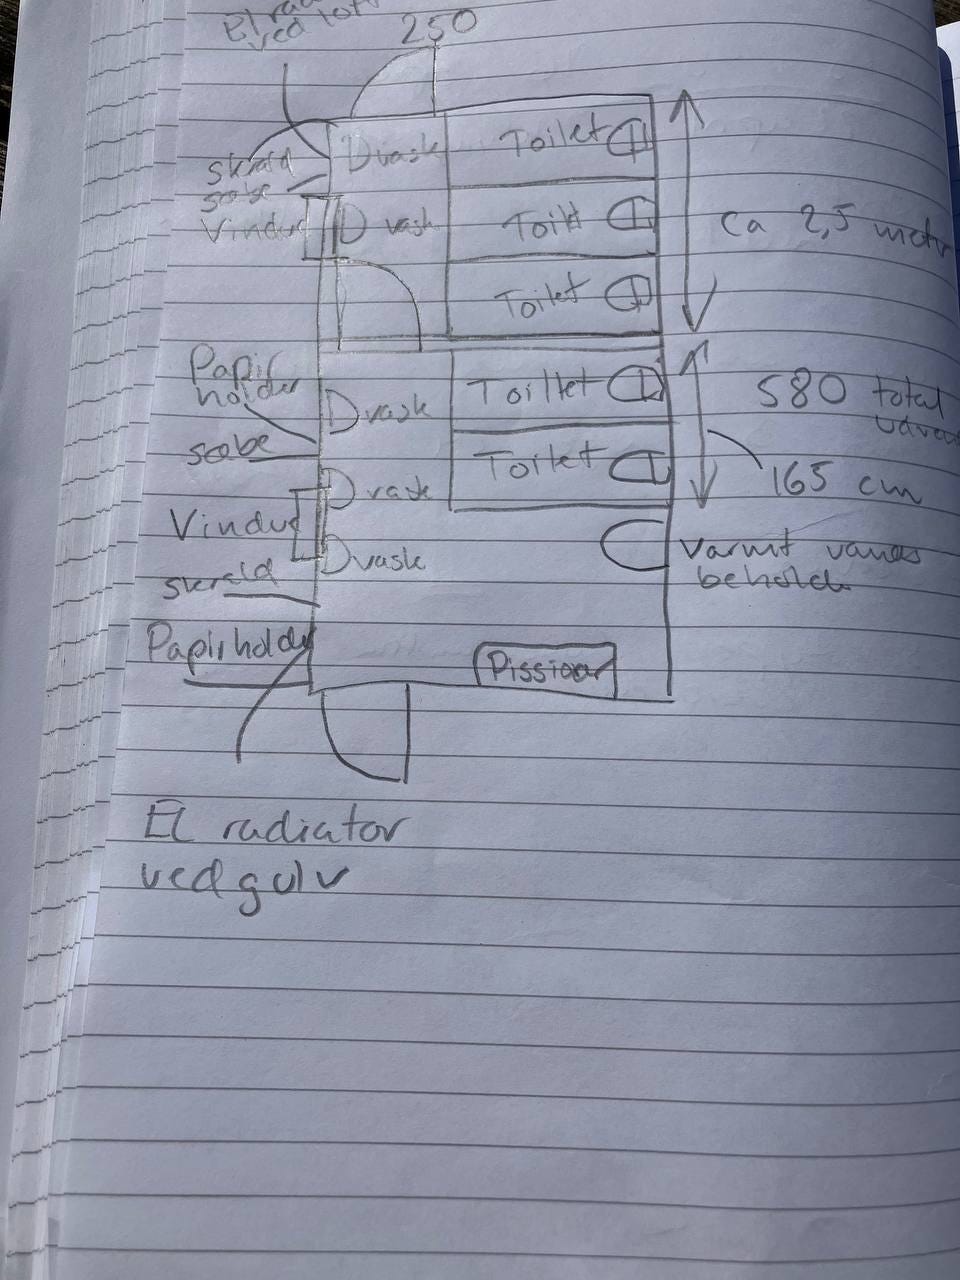 El rad
ved loft
250
Skrald
sæbe
Vindue
Vask
Vask
Toilet
Toilet
Toilet
Ca 2,5 metr
Papir
holder
sæbe
Vask
Toillet
580 total
Vask
Toilet
165 cm
Vindue
Vask
Varmt vands
behold
skrald
Papirholder
Pissioar
El radiator
ved gulv